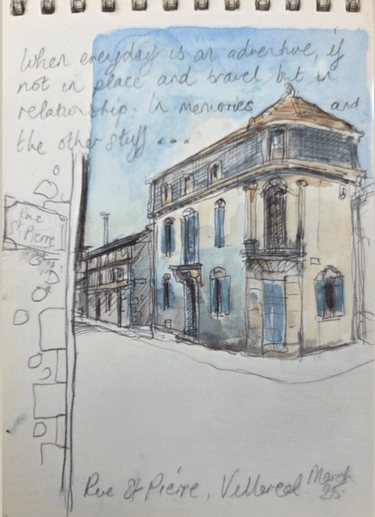 When everyday is an adventure, if
not in place and travel but in
relationship. In memories and
the other stuff ...
Rue
St Pierre
Rue St Pierre, Villereal March
25.